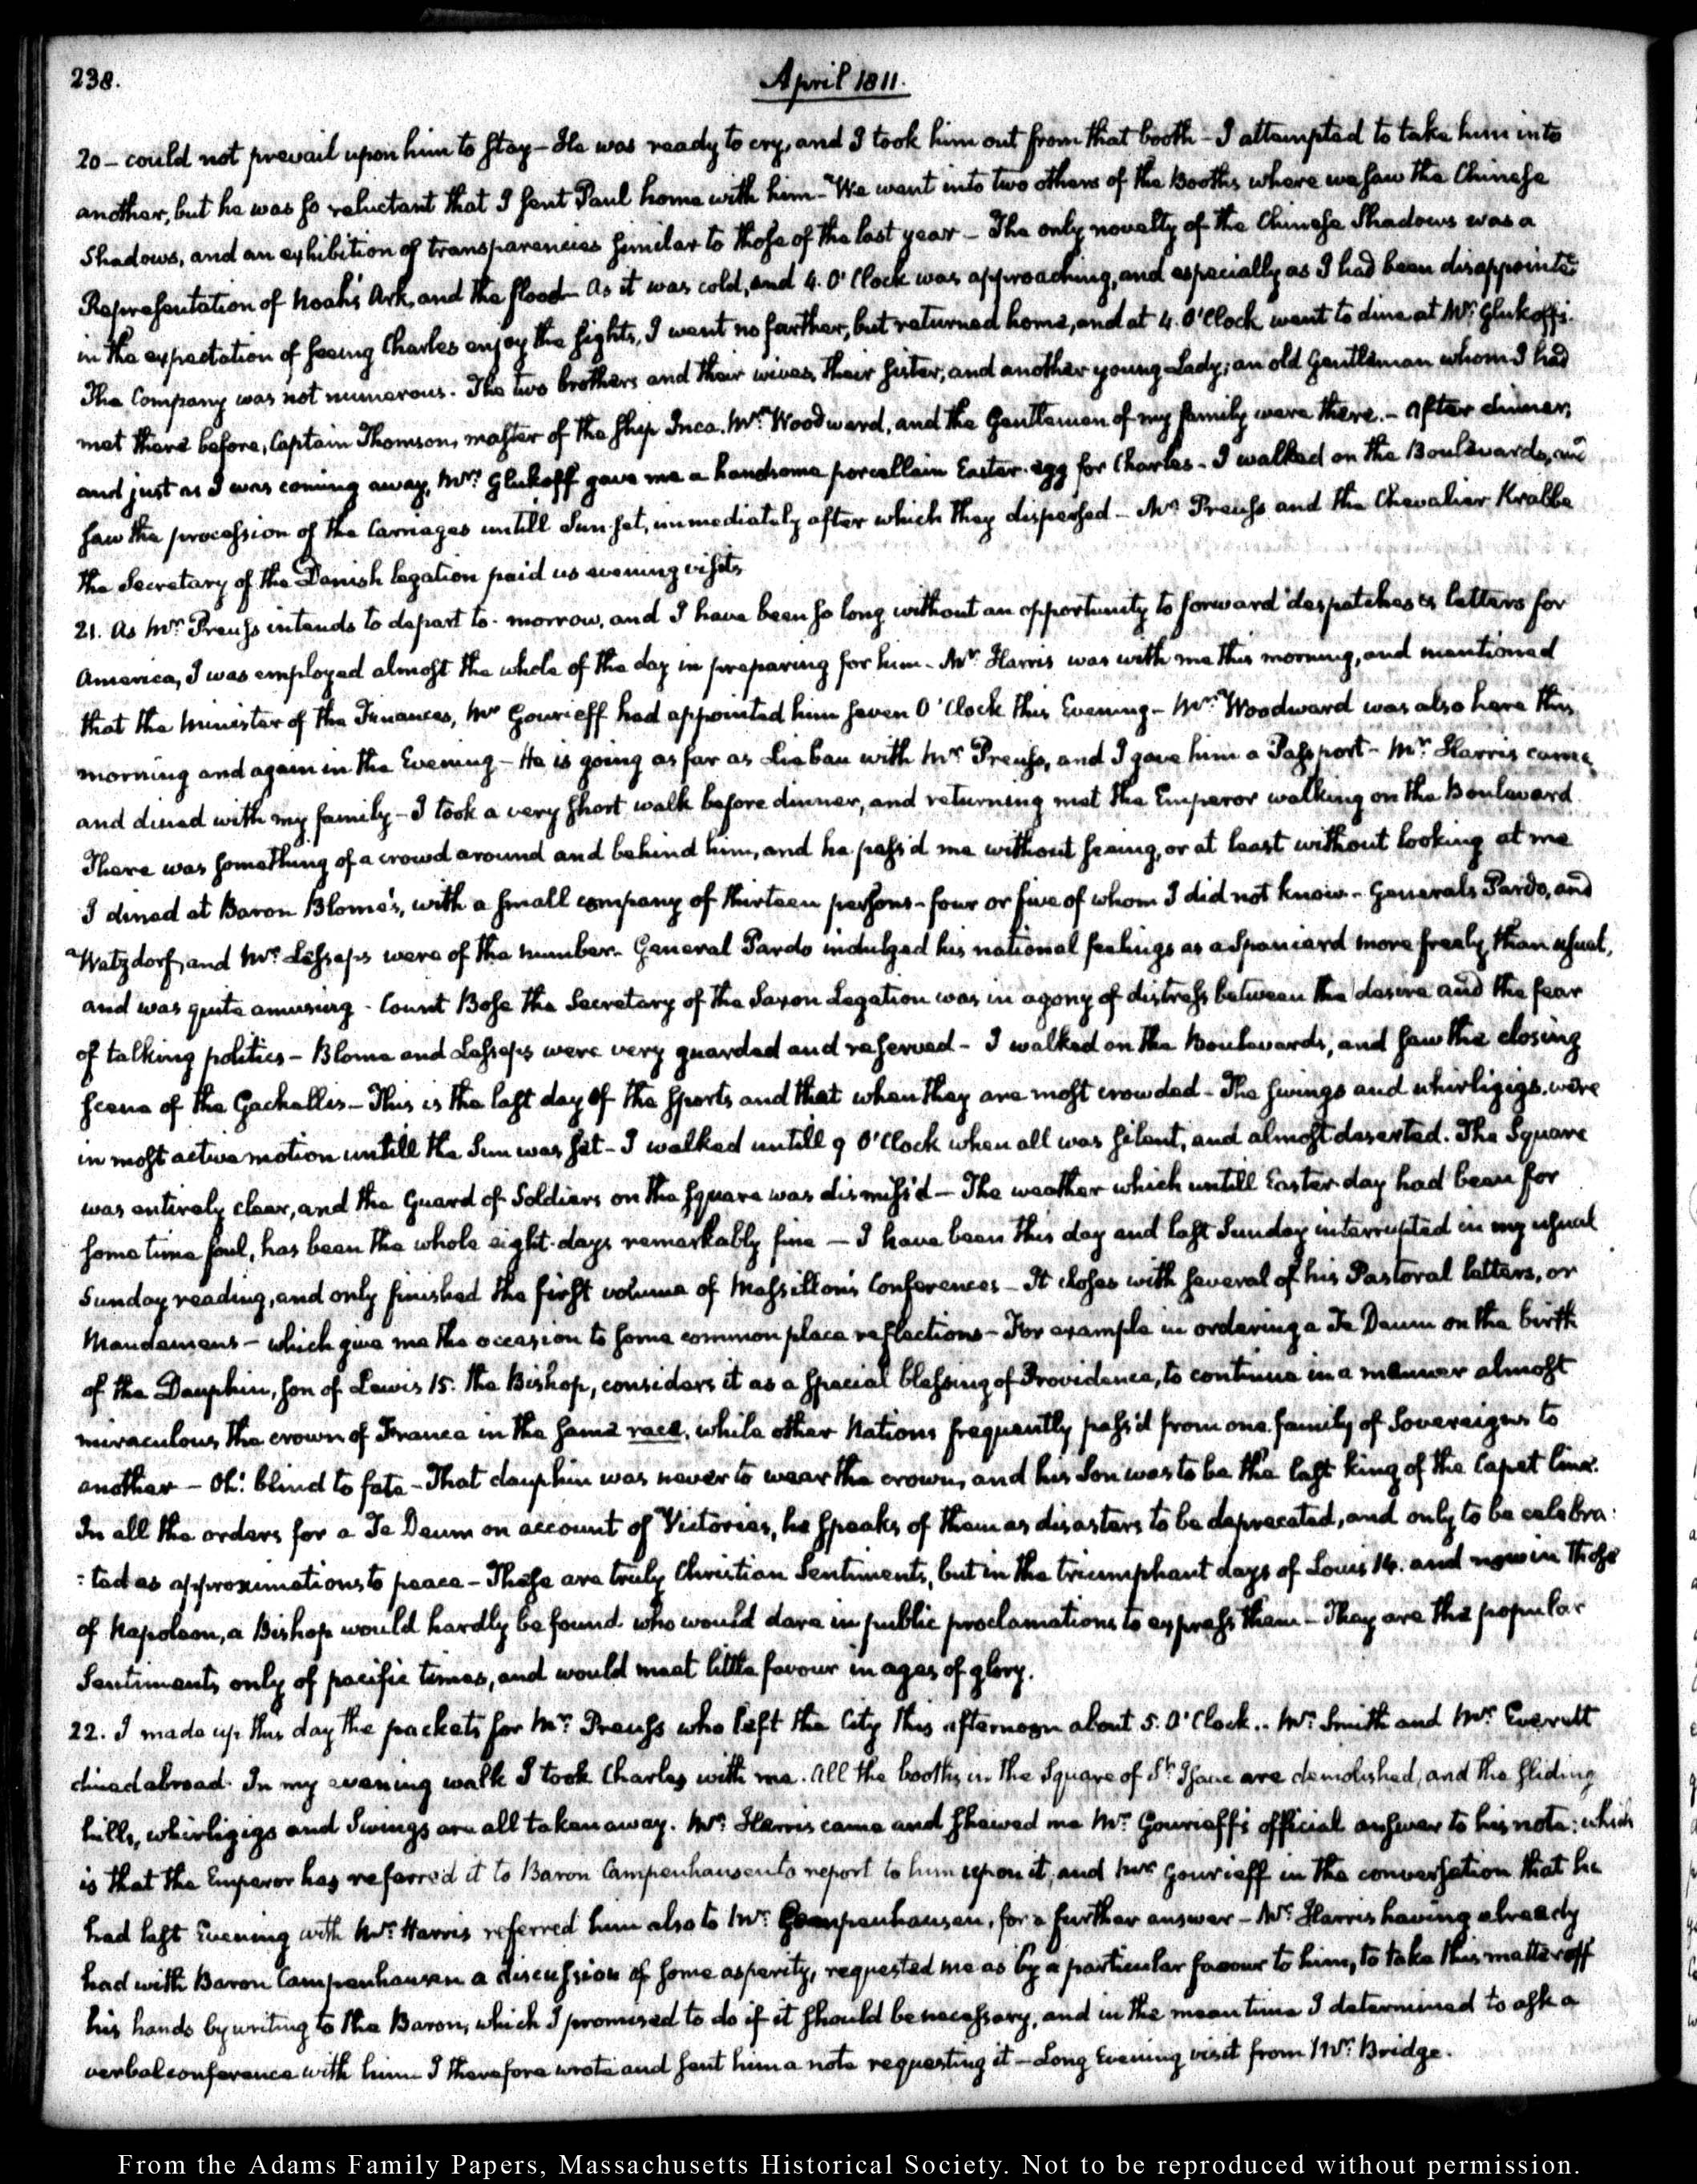 238.
April 1811.
20 – could not prevail upon him to stay – He was ready to cry, and I took him out from that booth – I attempted to take him into
another, but he was so reluctant that I sent Paul home with him – We went into two others of the Booths where we saw the Chinese
Shadows, and an exhibition of transparencies similar to those of the last year – The only novelty of the Chinese Shadows was a
Representation of Noah's Ark, and the flood – As it was cold, and 4. O'Clock was approaching, and especially as I had been disappointed
in the expectation of seeing Charles enjoy the sights, I went no farther, but returned home, and at 4. O'Clock went to dine at Mr: Glukoff's.
The Company was not numerous. The two brothers and their wives, their sister, and another young Lady; an old Gentleman whom I had
met there before, Captain Thomson, master of the ship Inca. Mr: Woodward, and the Gentlemen of my family were there. – After dinner,
and just as I was coming away, Mrs: Glukoff gave me a handsome porcellain Easter-egg for Charles – I walked on the Boulevards, and
saw the procession of the Carriages untill Sun-set, immediately after which they dispersed – Mr: Preuss and the Chevalier Krabbe
the Secretary of the Danish legation paid us evening visits
21. As Mr: Preuss intends to depart to-morrow, and I have been so long without an opportunity to forward despatches or letters for
America, I was employed almost the whole of the day in preparing for him – Mr: Harris was with me this morning, and mentioned
that the Minister of the Finances, Mr Gourieff had appointed him seven O'Clock this Evening – Mr: Woodward was also here this
morning and again in the Evening – He is going as far as Liebau with Mr: Preuss, and I gave him a Passport – Mr: Harris came,
and dined with my family – I took a very short walk before dinner, and returning met the Emperor walking on the Boulevard.
There was something of a crowd around and behind him, and he pass'd me without seeing, or at least without looking at me
I dined at Baron Blome's, with a small company of thirteen persons – four or five of whom I did not know – Generals Pardo, and
Watzdorf, and Mr: Lesseps were of the number – General Pardo indulged his national feelings as a Spaniard more freely than usual,
and was quite amusing – Count Bose the Secretary of the Saxon Legation was in agony of distress between the desire and the fear
of talking politics – Blome and Lesseps were very guarded and reserved – I walked on the Boulevards, and saw the closing
scene of the Gachallis – This is the last day of the sports and that when they are most crowded – The swings and whirligigs, were
in most active motion untill the Sun was set – I walked untill 9 O'Clock when all was silent, and almost deserted. The Square
was entirely clear, and the Guard of Soldiers on the square was dismiss'd – The weather which untill Easter-day had been for
some time foul, has been the whole eight-days remarkably fine – I have been this day and last Sunday interrupted in my usual
Sunday reading, and only finished the first volume of Massillon's Conferences – It closes with several of his Pastoral letters, or
Mandemens – which give me the occasion to some common place reflections – For example in ordering a Te Deum on the birth
of the Dauphin, son of Lewis 15. the Bishop, considers it as a special blessing of Providence, to continue in a manner almost
miraculous the crown of France in the same race, while other Nations frequently pass'd from one family of Sovereigns to
another – Oh! blind to fate – That dauphin was never to wear the crown, and his Son was to be the last king of the Capet line.
In all the orders for a Te Deum on account of Victories, he speaks of them as disasters to be deprecated, and only to be celebra:
:ted as approximations to peace – These are truly Christian Sentiments, but in the triumphant days of Louis 14. and now in those
of Napoleon, a Bishop would hardly be found who would dare in public proclamations to express them – They are the popular
Sentiments only of pacific times, and would meet little favour in ages of glory.
22. I made up this day the packets for Mr: Preuss who left the City this afternoon about 5. O'Clock.. Mr: Smith and Mr: Everett
dined abroad. In my evening walk I took Charles with me. All the booths in the Square of St: Isaac are demolished, and the sliding
hills, whirligigs and Swings are all taken away. Mr: Harris came and shewed me Mr: Gourieff's official answer to his note: which
is that the Emperor has referred it to Baron Campenhausen to report to him upon it, and Mr: Gourieff in the conversation that he
had last Evening with Mr: Harris referred him also to Mr: Campenhausen, for a further answer – Mr: Harris having already
had with Baron Campenhausen a discussion of some asperity, requested me as by a particular favour to him, to take this matter off
his hands by writing to the Baron, which I promised to do if it should be necessary, and in the mean time I determined to ask a
verbal conference with him I therefore wrote and sent him a note requesting it – Long Evening visit from Mr: Bridge.
From the Adams Family Papers, Massachusetts Historical Society. Not to be reproduced without permission.